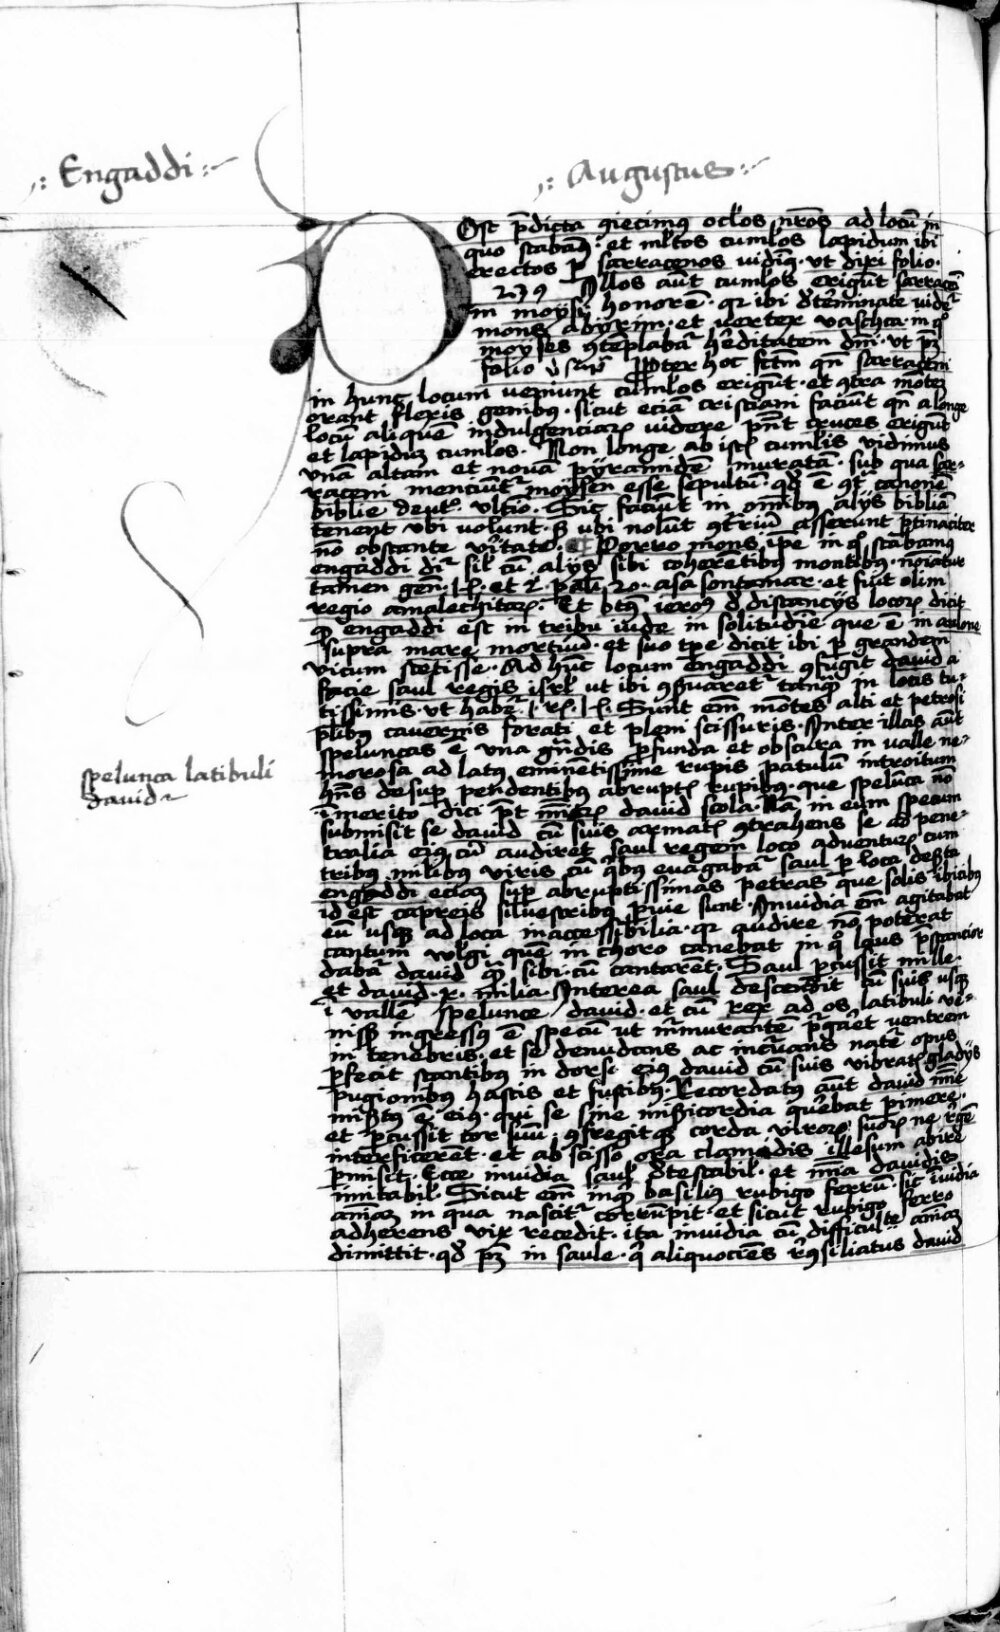 Engaddi
Augustus
POst p̄dicta 9iecimus oc̄los nr̄os ad locū in
quo stabam9 · et ml̄tos cumlos lapidum ibi
erectos p sarracenos vidim9 · vt dixi folio ·
239 Illos aūt cumlos erigūt sarraceni
in moysi honorē · qr ibi
mons abyrim · et vertex vaschca · in q°
moyses 9tēplabat hēditatem dn̄i · vt p3
folio Preter hoc qn̄ sarraceni
in hunc locum veniunt cumlos erigūt · et 9tra mōtem
orant flexis genibus · sicut eciā cristiani faciūt qn̄ a longe
locū aliquē indulgenciarū videre pn̄t cruces erigūt
et lapidum cumlos · Non longe ab istis cumlis vidimus
vnā altam et nouā pyramidē muratā · sub qua sar=
raceni menciūt moysen esse sepultū · qd ē 9tra canonē
biblie deut° · vltio · Sic faciūt in omībus alijs bibliā
tenent vbi volunt · s3 vbi nolūt 9trariū asserunt p̄tinaciter
nō obstante v̄itate · Porro mons ip̄e in q° stabamus
engaddi dr̄ sil̄ cū alijs sibi coherētibus montibus · noīatur
tamen gen̄ · et 2 · pali · 20 · asasontamar · et fūit olim
regio amalechitarū · Et btūs iero9 de distancijs locorū dicit
qp engaddi est in tribu iude in solitudīe que ē in aulone
supra mare mortuū · et suo tp̄e dicit ibi p grandem
vicum stetisse · Ad hūc locum engaddi 9fugit dauid a
facie saul regis isrl̄ ut ibi 9s̄uaret tanq in locis tu=
tissimis · vt habr̄ Sunt em̄ mōtes alti et petrosi
pl̄ibus cauernis forati et pleni scissuris · Inter illas aūt
speluncas ē vna gn̄dis p̄funda et obscura in valle ne=
morosa ad latus eminētissime rupis patulū introitum
hn̄s desup pendentibus abruptis rupibus · que spelūca nō
īmerito dici p̄t dauid scola · Nā in eum specum
submisit se dauid cū suis armatis 9trahens se ad pene=
tralia eius cū audiret saul regem loco aduenturū cum
tribus milibus viris cū q̄bus euagabat saul p loca deserta
engaddi eciam sup abruptissimas petras que solis ibicibus
id est capreis siluestribus p̄uie sunt · Inuidia em̄ agitabat
eū vsq3 ad loca inaccessibilia · qr audire nō poterat
cantum vulgi quē in choro canebat in q° laus p̄stancior
dabat̄ dauid q̄ sibi · cū cantarēt · Saul p̄cussit mille ·
et dauid · x · milia · Interea saul descendit cū suis vsq3
ī vallē spelunce dauid · et cū rex ad os latibuli ve=
nisset ingressus ē specū ut purgaret ventrem
in tenebris · et se denudans ac nate opus
p̄fecit stantibus in dorso eius dauid cū suis vibratis gladijs
pugionibus hastis et fustibus · Recordatus aūt dauid
misertus ē eius · qui se sine misericordia querebat p̄imere ·
et p̄cussit cor suū · 9fregitq3 corda virorū suorū ne regē
interficerēt · et abscisso ora clamidis illesum abire
p̄misit · Ecce inuidia saul detestabil · et dauidis
imitabil · Sicut em̄ inq̄ basilius rubigo ferrū · sic īuidia
animam in qua nascit̄ corrūpit · et sicut rubigo ferro
adherens vix recedit · ita inuidia cū difficultate animam
dimittit · qd p3 in saule · q̄ aliquociens reconsiliatus dauid
spelunca latibuli
dauid